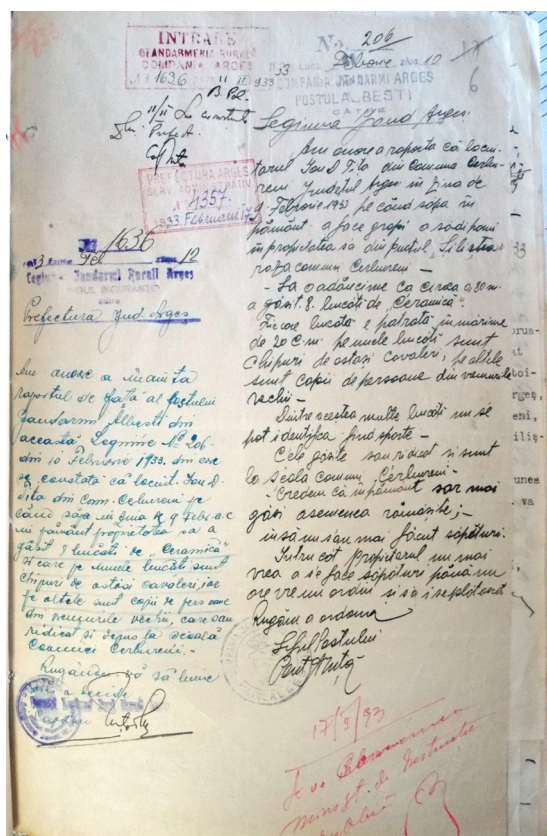 INTRARE
GEANDARMERIA RURALĂ
COMPANIA ARGEȘ
№ 1636
933
No. 206
933 Luna Februarie Ziua 10
COMPANIA JANDARMI ARGES
POSTUL ALBESTI
CĂTRE
Legiunea Jand. Arges
6
PREFECTURA ARGEȘ
SERV. ADMINISTRATIV
1357
1933 Februarie 17
Am onoare a raporta că locui-
torul Ion D. Fita din Comuna Cerbu-
reni Județul Arges în ziua de
9 Februarie 1933 pe când săpa în
pământ a face gropi a sădi pomi
în propietatea sa din punctul
raza comunei Cerbureni –
– La o adâncime ca circa 0,80 m.
a găsit 8. bucăți de "Ceramică".
Fiecare bucată e patrată în mărime
de 20 c.m. pe unele bucăți sunt
chipuri de ostași cavaleri, pe altele
sunt copii de persoane din vremurile
vechi –
Dintre acestea multe bucăți nu se
pot identifica fiind sparte –
Cele găsite sau ridicat și sunt
la școala comunei Cerbureni –
– Credem că în pământ sar mai
găsi asemenea rămășițe; –
însă nu sau mai făcut săpături.
Întru cât propietarul nu mai
vrea a se face săpături până nu
are vre un ordin și să i se plătească
Rugăm a ordona
Șeful Postului
No. 1636
933 Luna Feb Ziua 12
Legiunea Jandarmi Rurali Arges
BIROUL SIGURANTEI
către
Prefectura Jud. Arges
Am onoare a înainta
raportul de față al postului
jandarmi Albesti din
această Legiune No 206
din 10 Februarie 1933. din care
se constată că locuit. Ion D.
Fita din com. Cerbureni pe
când săpa în ziua de 9 Febr. a.c.
în pământ propietatea sa a
găsit 8 bucăți de "Ceramică"
și care pe unele bucăți sunt
chipuri de ostași cavaleri, iar
pe altele sunt copii de persoane
din vremurile vechi, care sau
ridicat și depus la școala
Comunei Cerbureni. –
Rugându-vă să bine
voiți a decide
17/II/933
Se va comunica
Minist. de Instrucție
Publică